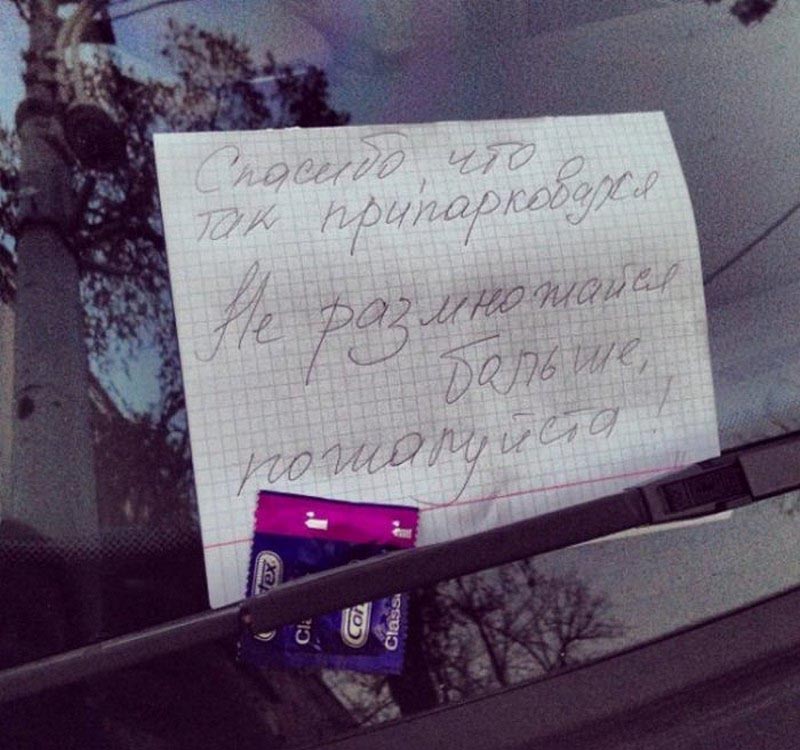 Спасибо, что
так припарковался
Не размножайся
больше,
пожалуйста!
Contex
Classic